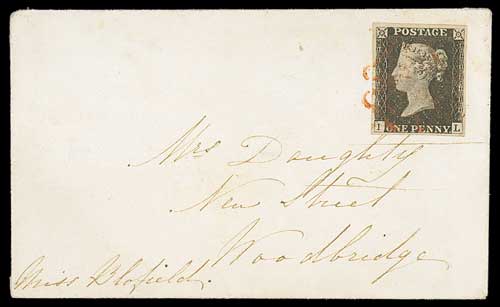 POSTAGE
I ONE PENNY L
Mrs Doughty
New Street
Woodbridge
Miss Blofield.